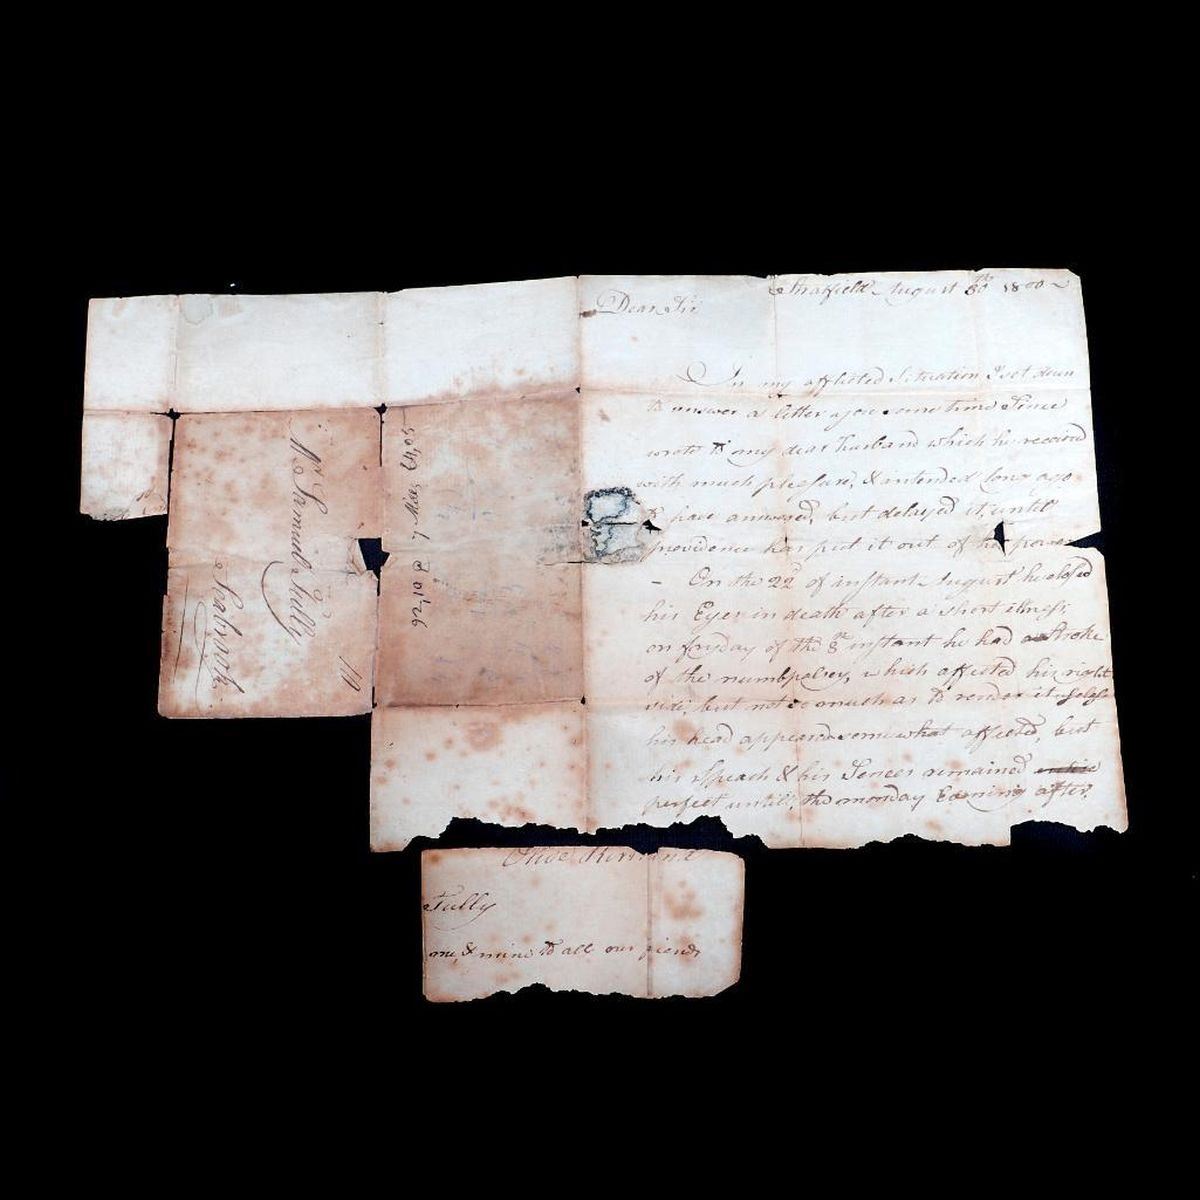 Stratfield August 30th 1800
Dear Sir
In my afflicted Situation I set down
to answer a letter you some time Since
wrote to my dear husband which he received
with much pleasure, & intended long ago
to have answered, but delayed it, until
providence has put it out of his power
- On the 22d of instant August he closed
his Eyes in death after a short illness,
on fryday of the 8th instant he had a Stroke
of the numbpalsey, which affected his right
side, but not so much as to render it useless
his head appeared somewhat affected, but
his Speach & his Sences remained
perfect untill, the monday Evening after.
Mr. Samuel Tully
Seabrook
92,10 @ 7 Mills 64,05
Olive
Tully
me, & mine to all our friends